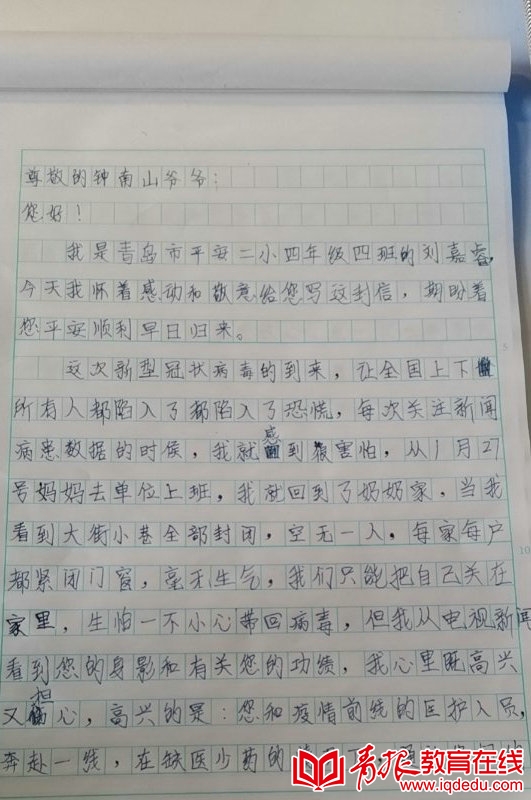 尊敬的钟南山爷爷：
您好！
我是青岛市平安二小四年级四班的刘嘉睿，
今天我怀着感动和敬意给您写这封信，期盼着
您平安顺利早日归来。
这次新型冠状病毒的到来，让全国上下
所有人都陷入了都陷入了恐慌，每次关注新闻
病患数据的时候，我就感到很害怕，从1月27
号妈妈去单位上班，我就回到了奶奶家，当我
看到大街小巷全部封闭，空无一人，每家每户
都紧闭门窗，毫无生气，我们只能把自己关在
家里，生怕一不小心带回病毒，但我从电视新闻
看到您的身影和有关您的功绩，我心里既高兴
又担心，高兴的是：您和疫情前线的医护人员，
奔赴一线，在缺医少药的
青报教育在线
www.iqdedu.com